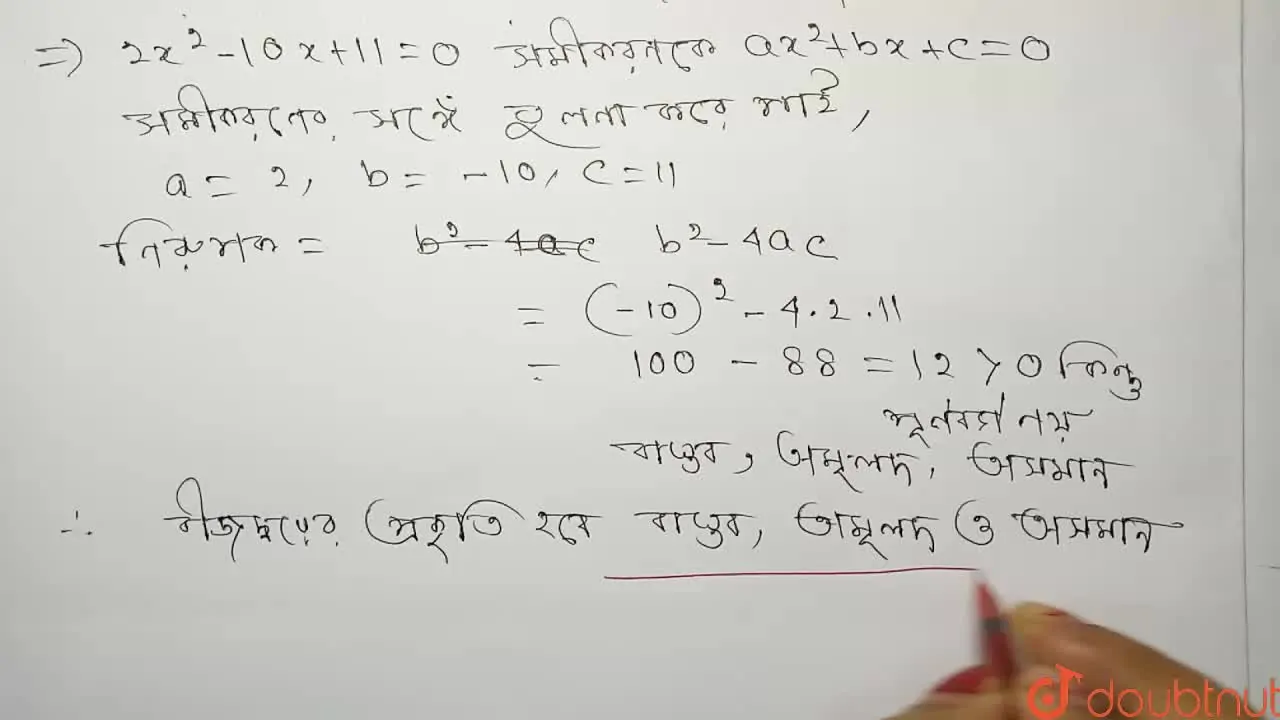 ⇒ 2x² - 10x + 11 = 0 সমীকরণকে ax² + bx + c = 0
সমীকরণের সঙ্গে তুলনা করে পাই,
a = 2, b = -10, c = 11
নিরূপক = b² - 4ac b² - 4ac
= (-10)² - 4.2.11
= 100 - 88 = 12 > 0 কিন্তু
পূর্ণবর্গ নয়
বাস্তব, অমূলদ, অসমান
∴ বীজদ্বয়ের প্রকৃতি হবে বাস্তব, অমূলদ ও অসমান
doubtnut